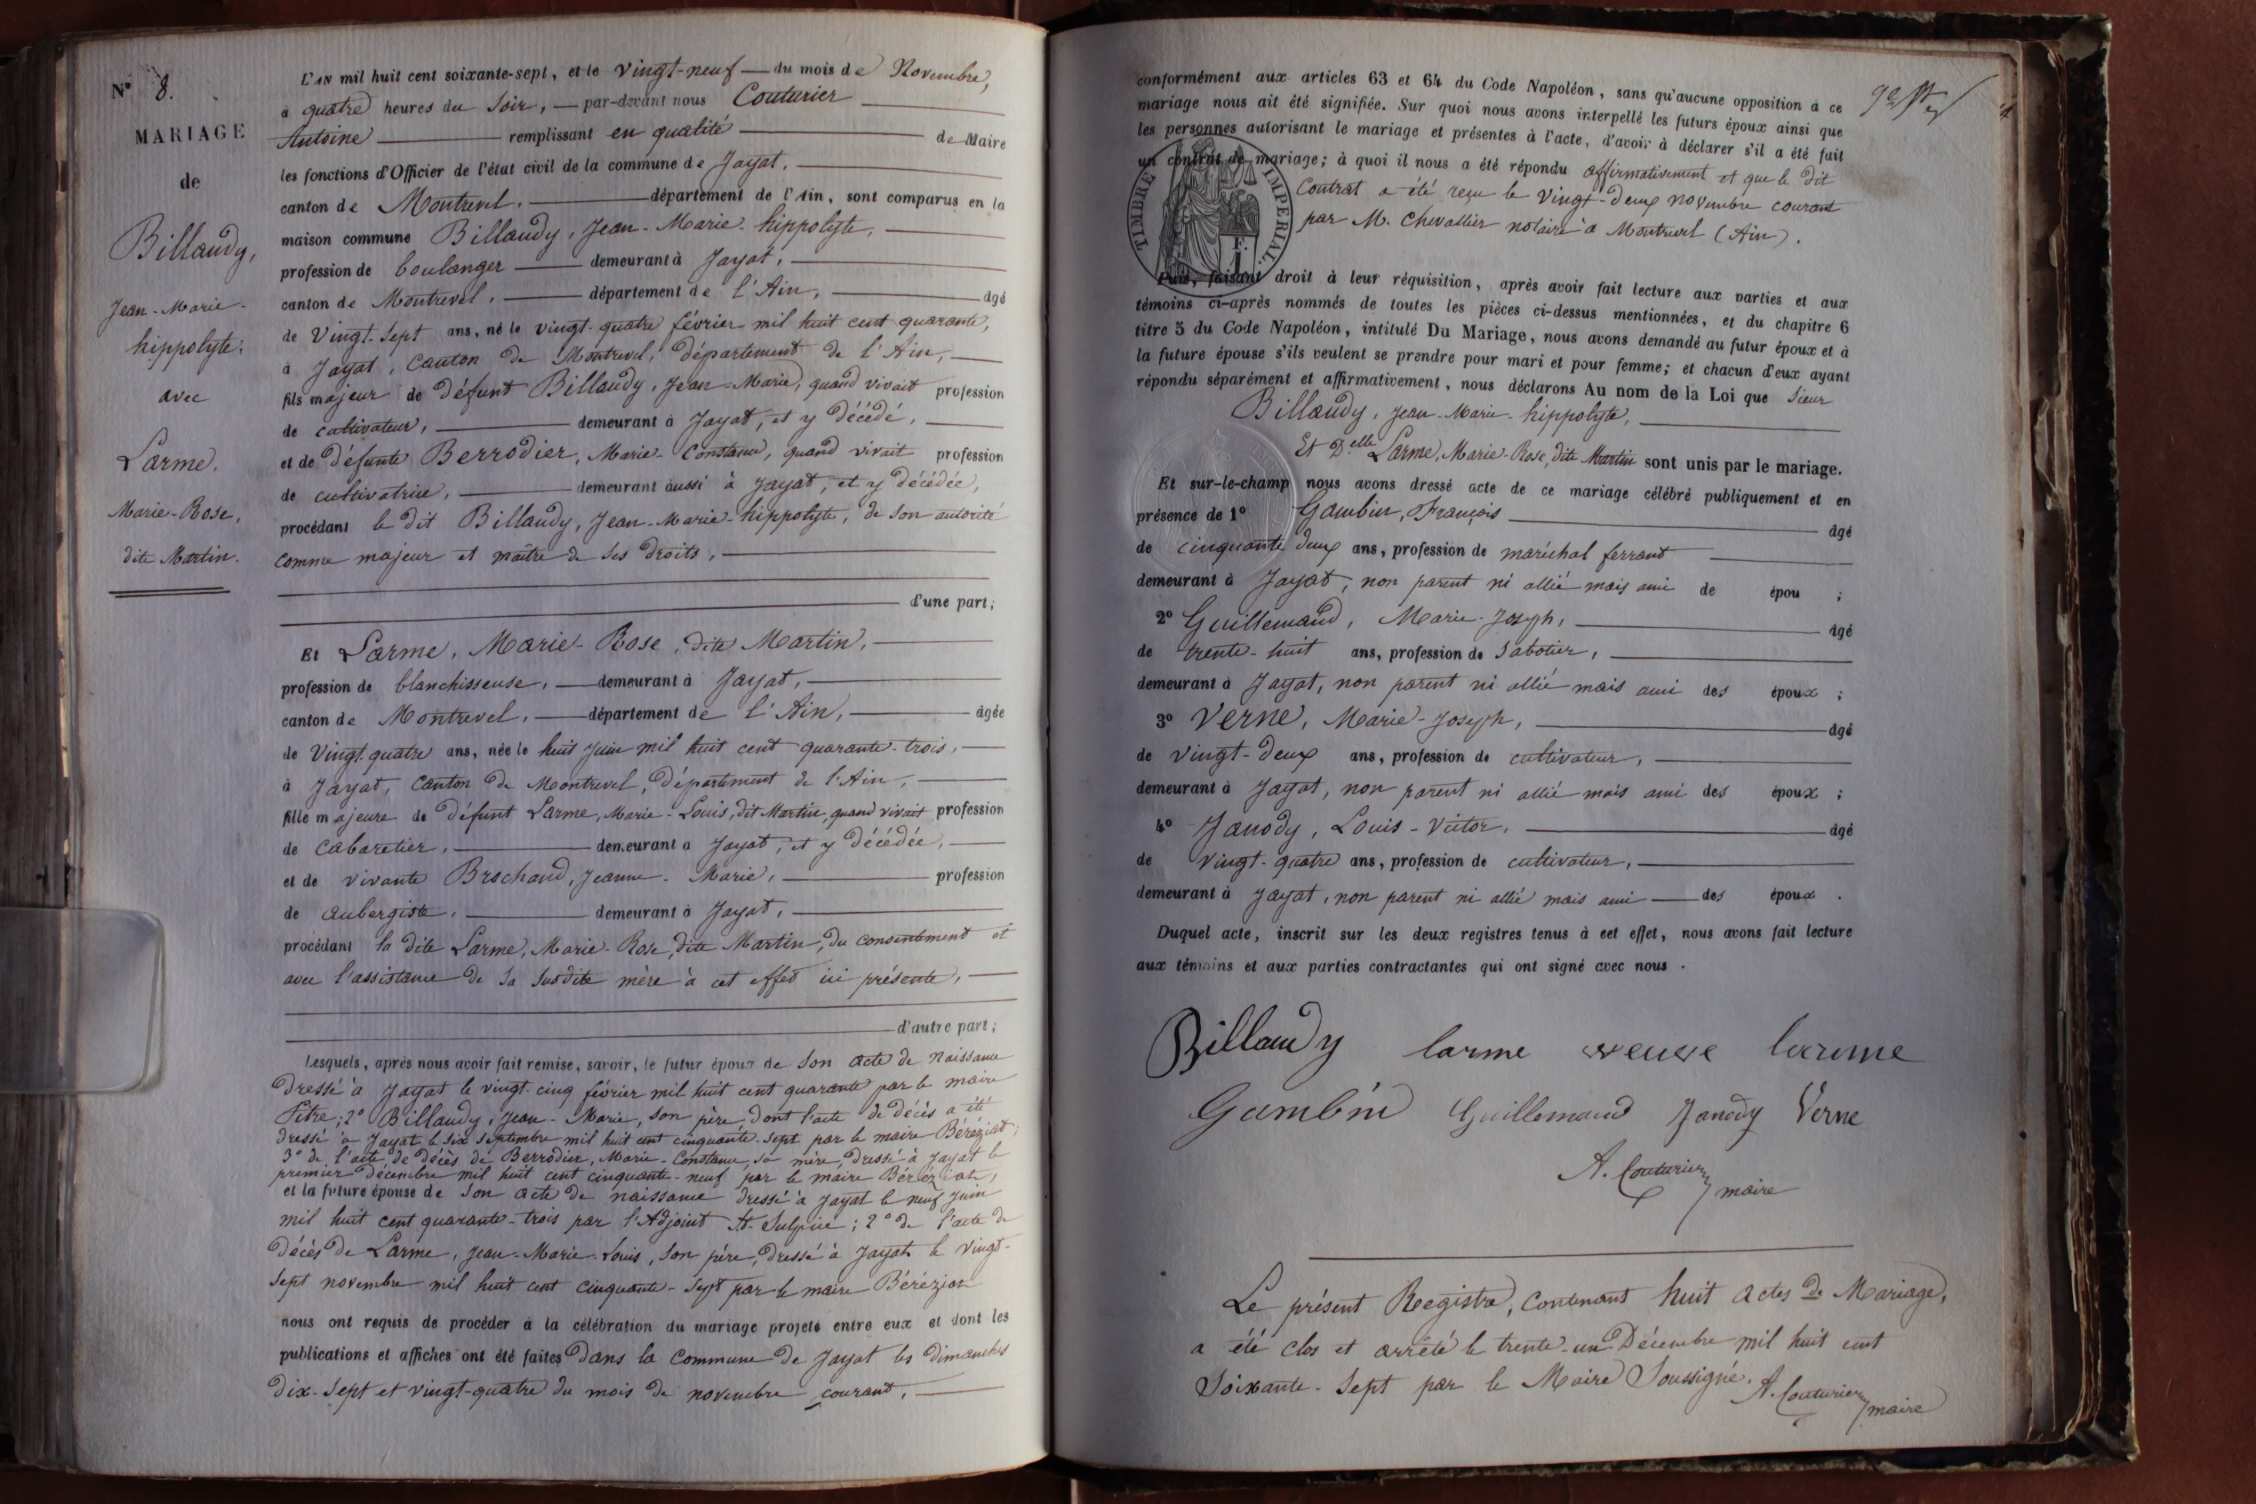 N° 8.
MARIAGE
de
Billaudy,
Jean-Marie-
hippolyte.
avec
Larme.
Marie-Rose,
dite Martin.
L'AN mil huit cent soixante-sept, et le vingt-neuf du mois de Novembre,
à quatre heures du soir, par-devant nous Couturier
Antoine remplissant en qualité de Maire
les fonctions d'Officier de l'état civil de la commune de Jayat,
canton de Montrevel, département de l'Ain, sont comparus en la
maison commune Billaudy, Jean-Marie-hippolyte,
profession de boulanger demeurant à Jayat,
canton de Montrevel, département de l'Ain, âgé
de Vingt-sept ans, né le vingt-quatre février mil huit cent quarante,
à Jayat, canton de Montrevel, département de l'Ain,
fils majeur de défunt Billaudy, Jean-Marie, quand vivait profession
de cultivateur, demeurant à Jayat, et y décédé,
et de défunte Berrodier, Marie-Constance, quand vivait profession
de cultivatrice, demeurant aussi à Jayat, et y décédée,
procédant le dit Billaudy, Jean-Marie-hippolyte, de son autorité
comme majeur et maître de ses droits,
d'une part;
Et Larme, Marie-Rose, dite Martin,
profession de blanchisseuse, demeurant à Jayat,
canton de Montrevel, département de l'Ain, âgée
de Vingt-quatre ans, née le huit Juin mil huit cent quarante-trois,
à Jayat, canton de Montrevel, département de l'Ain,
fille majeure de défunt Larme, Marie-Louis, dit Martin, quand vivait profession
de cabaretier, demeurant à Jayat, et y décédée,
et de vivante Brochand, Jeanne-Marie, profession
de aubergiste, demeurant à Jayat,
procédant la dite Larme, Marie-Rose, dite Martin, du consentement et
avec l'assistance de sa susdite mère à cet effet ici présente,
d'autre part;
Lesquels, après nous avoir fait remise, savoir, le futur époux de son acte de naissance
dressé à Jayat le vingt-cinq février mil huit cent quarante par le maire
Pitre; 2° Billaudy, Jean-Marie, son père, dont l'acte de décès a été
dressé à Jayat le six septembre mil huit cent cinquante-sept par le maire Béréziat;
3° de l'acte de décès de Berrodier, Marie-Constance, sa mère, dressé à Jayat le
premier décembre mil huit cent cinquante-neuf par le maire Béréziat,
et la future épouse de son acte de naissance dressé à Jayat le neuf Juin
mil huit cent quarante-trois par l'Adjoint St. Sulpice; 2° de l'acte de
décès de Larme, Jean-Marie-Louis, son père, dressé à Jayat le vingt-
sept novembre mil huit cent cinquante-sept par le maire Béréziat
nous ont requis de procéder à la célébration du mariage projeté entre eux et dont les
publications et affiches ont été faites dans la commune de Jayat les dimanches
dix-sept et vingt-quatre du mois de novembre courant,
conformément aux articles 63 et 64 du Code Napoléon, sans qu'aucune opposition à ce
mariage nous ait été signifiée. Sur quoi nous avons interpellé les futurs époux ainsi que
les personnes autorisant le mariage et présentes à l'acte, d'avoir à déclarer s'il a été fait
un contrat de mariage; à quoi il nous a été répondu affirmativement et que le dit
Contrat a été reçu le vingt-deux novembre courant
par M. Chevallier notaire à Montrevel (Ain).
TIMBRE IMPERIAL.
Puis, faisant droit à leur réquisition, après avoir fait lecture aux parties et aux
témoins ci-après nommés de toutes les pièces ci-dessus mentionnées, et du chapitre 6
titre 5 du Code Napoléon, intitulé Du Mariage, nous avons demandé au futur époux et à
la future épouse s'ils veulent se prendre pour mari et pour femme; et chacun d'eux ayant
répondu séparément et affirmativement, nous déclarons Au nom de la Loi que sieur
Billaudy, Jean-Marie-hippolyte,
Et Delle Larme, Marie-Rose, dite Martin sont unis par le mariage.
Et sur-le-champ nous avons dressé acte de ce mariage célébré publiquement et en
présence de 1° Gambin, François âgé
de cinquante deux ans, profession de maréchal ferrant
demeurant à Jayat, non parent ni allié mais ami de épou ;
2° Guillemaud, Marie-Joseph, âgé
de trente-huit ans, profession de sabotier,
demeurant à Jayat, non parent ni allié mais ami des époux ;
3° Verne, Marie-Joseph, âgé
de vingt-deux ans, profession de cultivateur,
demeurant à Jayat, non parent ni allié mais ami des époux ;
4° Janody, Louis-Victor, âgé
de vingt-quatre ans, profession de cultivateur,
demeurant à Jayat, non parent ni allié mais ami des époux .
Duquel acte, inscrit sur les deux registres tenus à cet effet, nous avons fait lecture
aux témoins et aux parties contractantes qui ont signé avec nous .
Billaudy larme veuve larme
Gambin Guillemaud Janody Verne
A. Couturier maire
Le présent Registre, contenant huit actes de Mariage,
a été clos et arrêté le trente-un Décembre mil huit cent
soixante-sept par le Maire Soussigné. A. Couturier maire